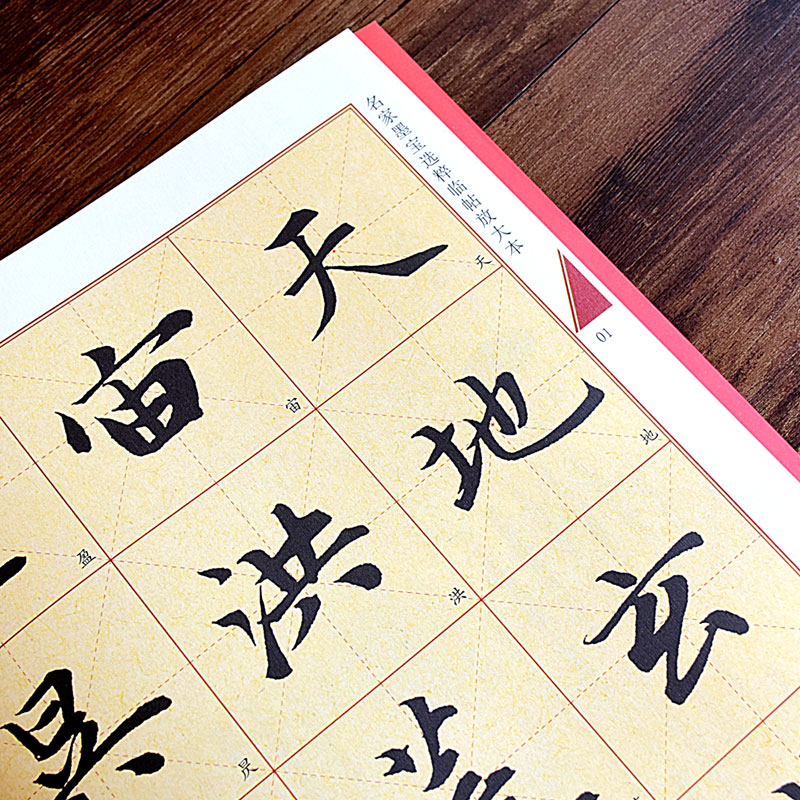 名家墨宝选粹临帖放大本
01
天地玄
天
地
宙洪荒
宙
洪
昃
盈
昃